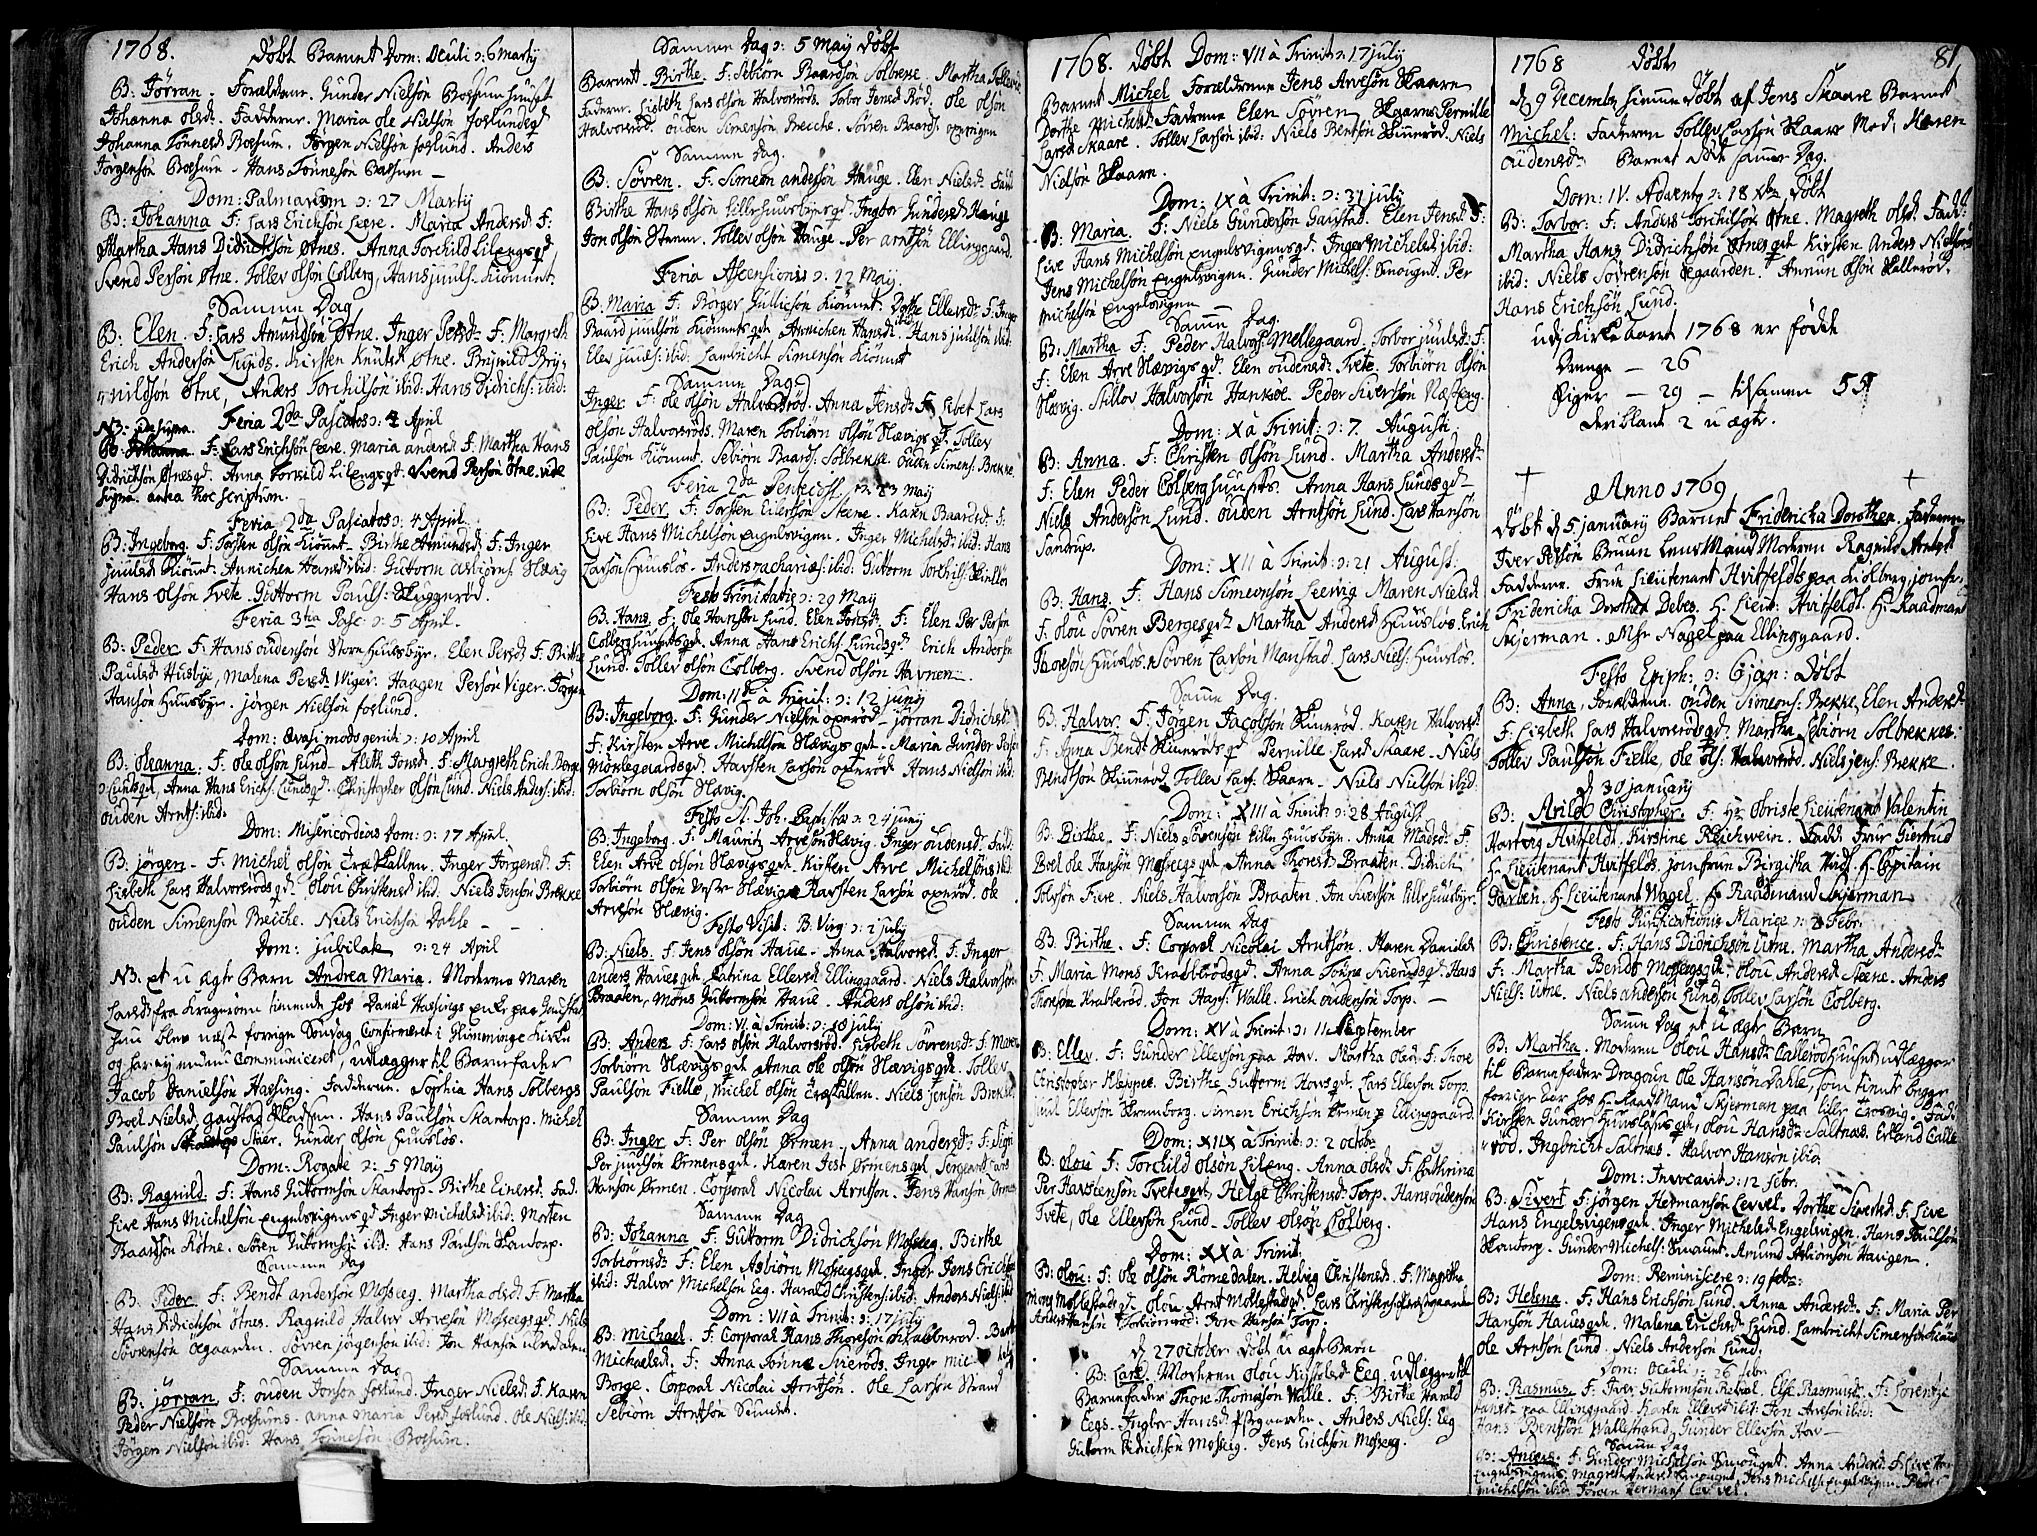 1768. Døbt Barnet Dom: Oculi ɔ: 6 Martij
B: Jörran. Forældrene. Gunder Nielsön Boesum huuset
Johanna olsd. Fadderne. Maria ole Nielsön foslundegd
Johanna Tönnesd Boesum. Jørgen Nielsön foslund. Anders
Jørgensön Boesum - Hans Tönnesön Boesum
Dom: Palmarum ɔ: 27 Martij
B: Johanna F: Lars Erichsön Leere. Maria Andersd F:
Martha Hans Didrichsön Øtnes. Anna Torchild Lilengsgd
Svend Persön Øtne. Tollev olsön Colberg, Hans juuls: Kiönnet.
Samme Dag
B: Elen. F: Lars Amundsön Øtne. Inger Persd F: Margreth
Erich Andersön Lunds. Kirsten Knutsd Øtne. Brynild Bry-
nildsön Øtne, Anders Torchilsön ibid: Hans Didrichs: ibid:
Feria 2da Paschatos ɔ: 4 April
NB: vide supra.
B: Johanna F: Lars Erichsön Leere. Maria andersd F: Martha Hans
Didrichsön Øtnesgd. Anna Torkild Lilengsgd. Svend Persön Øtne. vide
supra antea hoc scriptum.
Feria 2da Paschatos ɔ: 4 April
B: Ingeborg. F: Torsten olsön Kiönnet. Birthe Amundsd F: Inger
juulsd Kiönnet. Annichen Hansd ibid: Guttorm Asbiörns: Slævig
Hans olsön Tvete. Guttorm Pauls: Skuggerød.
Feria 3tia Pasc: ɔ: 5 April.
B: Peder F: Hans oudensön Store Huusbyr. Elen Persd F: Birthe
Paulsd Husbye, Malena Persd Viger. Haagen Persön Viger. Jørgen
Hansön Huusbyr. jörgen Nielsön foslund.
Dom: Qvasi modo geniti ɔ: 10 April
B: oleanna. F: ole olsön Lund. Alith Jonsd. F: Margreth Erich
Lundsgd, Anna Hans Erichs: Lundsgd. Christopher olsön Lund. Niels Anders: ibid:
ouden Arents: ibid:
Dom: Misericordias Dom: ɔ: 17 April.
B: jörgen. F: Michel olsön Træskallen. Inger Jörgensd: F:
Lisbeth Lars Halvorsrødsgd. olou Christensd ibid: Niels Jensön Brekke
ouden Simensön Brecche. Niels Erichsön Dahle
Dom: jubilate ɔ: 24 April
NB. et u ægte Barn Andrea Maria. Moderen Maren
Larsd fra Kragerøen tienende hos Daniel Hassings enke paa Gaustad
hun blev næst forrige Søndag Confirmeret i Flemminge Kirke
og har ej endnu communiceret, udlægger til Barnefader
Jacob Danielsön Hassing. Fadderne. Sophia Hans Solbergs
Boel Nielsd gaustad Pladsen. Hans Paulsön Skantorp. Michel
Paulsön Skaar. Gunder olsön Huuslos.
Dom: Rogate ɔ: 5 May
B: Ragnild F: Hans Guttormsön Skantorp. Birthe Einersd. Fad.
Live Hans Michelsön Engelsvigensgd Inger Michelsd ibid: Morten
Baardsön Køtne. Søren Guttormsön ibid: Hans Paulsön Skantorp.
Samme Dag
B: Peder F: Bendt andersön Mosseeg. Martha olsd F: Martha
Hans Didrichsön Øtnes. Ragnild Halvor Arvesön Mosseegsgd. Niels
Sørensön Øegaarden. Søvren jörgensön ibid: Jon Hansön
Samme Dag
B: jörran F: ouden Jonsön foslund. Inger Nielsd. F. Karen
Peder Nielsön Boesums. anna Maria Persd foslund. ole Niels: ibid:
Jörgen Nielsön ibid: Hans Tönnesön Boesum.
Samme Dag ɔ: 5 May Døbt
Barnet Birthe. F: Sebiørn Baardsön Solbrekke. Martha Tollevsd
Fadderne. Lisbeth Lars olsön Halvorsrøds. Torbor Jensd Rød. Ole olsön
Halvorsrød. ouden Simensön Brecche. Sövren Baards: oxerøgen
Samme Dag.
B. Søvren. F: Simeon andersön Hauge. Elen Nielsd. Fad:
Birthe Hans olsön Lillehuusbyrsgd. Ingbor Gundersd Hauge
Jon olsön Stene. Tollev olsön Hauge. Per arntsön Ellinggaard
Feria Ascensionis ɔ: 12 May.
B: Maria F. Borger Gullicsön Kiönnet. Dorthe Ellevsd. F: Inger
Baard juulsön Kiönnets gd. Annichen Hansd ibid: Hans juulsön ibid:
Elev juuls: ibid: Lambricht Simensön Kiönnet
Samme Dag
Inger F: ole olsön Halvorsrød. Anna Jensd: F. Lisbet Lars
olsön Halvorsröds. Maren Torbiørn olsön Slævigsgd. Tollev
Paulsön Kiönnet. Sebiørn Baards: Solbrekke. ouden Simens: Brekke
Feria 2da Pentecost ɔ: 23 May
B: Peder. F: Torsten Eilersön Steene. Karen Baardsd. F:
Live Hans Michelsön Engelsvigen. Inger Michelsd: ibid: Hans
Larsön Huuslos. Anders Zacharias: ibid: Guttorm Torchils: Skielleröd
Festo Trinitatis ɔ: 29 May
B: Hans. F: ole Hansön Lund. Elen Jonsd. F: Elen Per Persön
Colberghuusetsgd. Anna Hans Erichs: Lundsgd. Erich Andersön
Lund. Tollev olsön Colberg. Svend olsön Havnen.
Dom: IIda à Trinit: ɔ: 12 junij
B: Ingeborg. F: Gunder Nielsön oxerød. jörran Didrichsd.
F: Kirsten Arve Michelsön Slævigs gd. Maria Gunder Persön
Moxlegaardsgd. Haxsten Larsön oxerød. Hans Nielsön ibid:
Torbiörn olsön Slævig.
Festo St. Joh. Baptistæ ɔ: 24 junij
B: Ingeborg F: Mauritz Arvesön Slævig. Inger oudensd. Fad:
Elen Arve olsön Slævigsgd. Kirsten Arve Michelsöns ibid
Torbiörn olsön Slævig. Karsten Larsön oxerød. ole
Arvesön Slævig.
Festo Visit: B. Virg: ɔ: 2 july
B: Niels. F: Jens olsön Haue. Anna Halvorsd. F: Inger
Anders Hauesgd. Catrina Ellevsd Ellinggaard. Niels Halvorsön
Braaten, Mons Guttormsön Haue. Anders olsön ibid:
Dom: VI à Trinit: ɔ: 10 july
B: Anders F: Lars olsön Halvorsrød. Lisbeth Sövrensd. F: Maren
Torbiörn Slævigsgd. Anna ole olsön Slævigsgd. Tollev
Paulsön Fielle, Michel olsön Træskallen. Niels Jensön Brekke
Samme Dag
B: Inger F: Per olsön Ørmen. Anna andersd. F: Sigri
Per juulsön Ørmensgd. Karen Jest Ørmensgd. Sergeant Lars
Hansön Ørmen. Corporal Nicolai Arntsön. Jens Hansön Ørmen
Samme Dag
B: Johanna F: Guttorm Didrichsön Mosseeg. Birthe
Torbiörnsd: F: Elen Asbiörn Mosseegsgd. Inger Jens Erichsön
ibid: Halvor Michelsön Eeg. Harald Christens: ibid: Anders Niels: ibid
Dom: VII à Trinit: ɔ: 17 july
B: Michael. F: Corporal Hans Thoresön Krabberød. Berthe
Michaelsd. F: Anna Tönne Svieröds. Inger
Borge. Corporal Nicolai Arntsön. ole Larsön Strand
Sebiörn Arntsön Sundet.
1768. Døbt Dom: VII à Trinit: ɔ: 17 july
Barnet Michel Forældrene Jens Arvesön Skaare
Dorthe Michelsd. Fadderne Elen Søvren Skaares Pernille
Larsd Skaare. Tollev Larsön ibid: Niels Bentsön Skinnerød. Niels
Nielsön Skaare.
Dom: IX à Trinit: ɔ: 31 july
B: Maria. F: Niels Gundersön Gaustad. Elen Jensd. F:
Live Hans Michelsön Engelsvigensgd. Inger Michelsd ibid:
Jens Michelsön Engelsvigen. Gunder Michels: Smouget. Per
Michelsön Engelsvigen
Samme Dag.
B: Martha F: Peder Halvors: Mellegaard. Torbor juulsd. F:
F: Elen Arve Slævigs gd. Elen oudensd. Tvete. Torbiörn olsön
Slævig. Stillov Halvorsön Hanksøe. Peder Sivertsön Næsseng.
Dom: X à Trinit: ɔ: 7. August:
B: Anna. F: Christen olsön Lund. Martha Andersd
F: Elen Peder Colberghuusets. Anna Hans Lundsgd
Niels Andersön Lund. ouden Arntsön Lund. Lars Hansön
Sandrup.
Dom: XII à Trinit: ɔ: 21 August.
B: Hans F: Hans Simeonsön Leervig Maren Nielsd
F: olou Søvren Bergesgd. Martha Andersd Huuslos. Erich
Thoresön Huuslos. Søvren Larsön Manstad. Lars Niels: Huuslos.
Samme Dag.
B: Halvor. F: Jörgen Jacobsön Skinnerød. Karen Halvorsd.
F: Anna Bendt Skinnerödsgd Pernille Larsd Skaare. Niels
Bendtsön Skinnerød. Tollev Lars: Skaare. Niels Nielsön ibid:
Dom: XIII à Trinit: ɔ: 28 August
B: Birthe. F: Niels Sörensön Lille Huusbyr. Anna Madsd. F:
Boel ole Hansön Mosseegsgd. Anna Thoresd Braaten. Didrich
Tollefsön Fieve. Niels Halvorsön Braaten. Jon Iversön Lillehuusbyr.
Samme Dag
B. Birthe. F: Corporal Nicolai Arntsön. Karen Danielsd
F: Maria Mons Krabberødsgd. Anna Tönne Svierødsgd. Hans
Thoresön Krabberød. Jon Hans: Walle. Erich oudensön Torp.
Dom: XV à Trinit: ɔ: 11 September
B: Ellev. F: Gunder Ellevsön paa Hov. Martha olsd. F: Thore
Christopher Kleppes. Birthe Guttorm Hovsgd. Lars Ellevsön Torp.
juul Ellevsön Kronborg. Simen Erichsön Ørmen p Ellinggaard.
Dom: XIIX à Trinit: ɔ: 2 octobr
B: olou F: Torchild olsön Lileng. Anna olsd F: Cathrina
Per Haxstensön Tvetesgd. Helge Christensd Torp. Hans oudensön
Tvete, ole Ellevsön Lund. Tollev olsön Colberg.
Dom: XX à Trinit:
B: olou: F: ole olsön Römedalen. Helvig Christensd. F: Magrethe
Mons Mollestadsgd. olou Arnt Mollestadsgd. Lars Christens: Øegaarden
Anders Hansön Torbiörnrød. Jon Hansön Torp.
d. 27 october Døbt u ægte Barn
B. Lars. Moderen olou Kieldsd Eeg, udlegger til
Barnefader Thore Thomesön Walle. F: Birthe Harald
Eegs. Ingber Hansd Øegaarden. Anders Niels: Eeg
Guttorm Didrichsön Mosseeg. Jens Erichsön Mosseeg.
1768 Døbt 81
d. 9 December hiemme Døbt af Jens Skaare Barnet
Michel: Faderen Tollev Larsön Skaare Mod: Karen
oudensd. Barnet døde samme Dag.
Dom: IV. Advent: ɔ: 18 Xbr Døbt
B: Torbor: F: Anders Torchilsön Øtne. Magreth olsd. Fadd:
Martha Hans Didrichsön Øtnesgd Kirsten Anders Nielsöns
ibid: Niels Sövrensön Øegaarden. Amun olsön Kallerød.
Hans Erichsön Lund.
udj Kirke Aaret 1768 er fødte
Drenge - 26
Piger - 29 - tilsamen 55
deriblant 2 u ægte.
Anno 1769
Døbt d. 5 january Barnet Fridericha Dorothea. Faderen
Iver Persön Bruun Lensmand Moderen Ragnild Arntsd
Fadderne. Frue Lieutenant Hvitfeldt paa Kiölberg, jomfr:
Fridericha Dorothea Debes. H. Lieut: Hvitfeldt. H. Raadmand
Skjerman. Mr Nagel paa Ellinggaard.
Festo Epiph: ɔ: 6 jan: Døbt
B: Anna Forældrene ouden Simens: Brekke, Elen Andersd.
F. Lisbeth Lars Halvorsrødsgd. Martha Sebiörn Solbrekkes.
Tollev Paulsön Fielle, Ole ols: Halvorsrød. Niels jens: Brekke.
d. 30 january
B: Arild Christopher. F: Hr obriste Lieutenant Valentin
Hartvig Hvitfeldt. Kirstine Reichwein. Fadd: Frue
H. Lieutenant Hvitfelds, jomfruen Birgitha H. Capitain
Garben. H. Lieutenant Wagel. H Raadmand Skjerman
Festo Purificationis Mariæ ɔ: 2 Febr:
B: Christence. F: Hans Didrichsön Utne. Martha Andersd
F: Martha Bendt Mosseegsgd. olou Andersd Steene. Anders
Niels: Utne. Niels andersön Lund, Tollev Larsön Colberg.
Samme Dag et u ægte Barn
B: Martha. Moderen olou Hansd Callerødhuuset udlægger
til Barnefader Dragoun ole Hansön Dahle, som tiente begge
forrige Aar hos H. Raadmand Skjerman paa Lille Trosvig. Fadd:
Kirsten Gunder Huuslosgd, olou Hansd Saltnæs. Erland Calle
rød. Ingbricht Saltnæs. Halvor Hansön ibid:
Dom: Invocavit ɔ: 12 febr.
B: Sivert F: jörgen Hermansön Levvel. Dorthe Sivertsd. F. Live
Hans Engelsvigensgd. Inger Michelsd Engelsvigen. Hans Paulsön
Skantorp. Gunder Michels: Smouget. Amund Asbiörnsön Haugen.
Dom: Reminiscere ɔ: 19 febr:
B: Helena F: Hans Erichsön Lund. Anna Andersd. F: Maria Per
Hansön Hauesgd. Malena Erichsd Lund. Lambricht Simensön Kiönnet
ole Arntsön Lund. Niels Andersön Lund.
Dom: Oculi ɔ: 26 febr
B: Rasmus F: Iver Guttormsön Refsal. Else Rasmusd. F: Lorentze
Jansd paa Ellinggaard. Karen Ellevsd ibid: Jon Arvesön ibid:
Hans Bentsön Wallestrand. Gunder Ellevsön Hov
Samme Dag
B: Anders F: Gunder Michelsön Smouget. Anna Andersd. F: Live Hans
Engelsvigens. Magreth Andersd Smouget. Jens Michels: Engelsvigen. Peder
Michelsön ibid: Jörgen Hermans: Levvel.